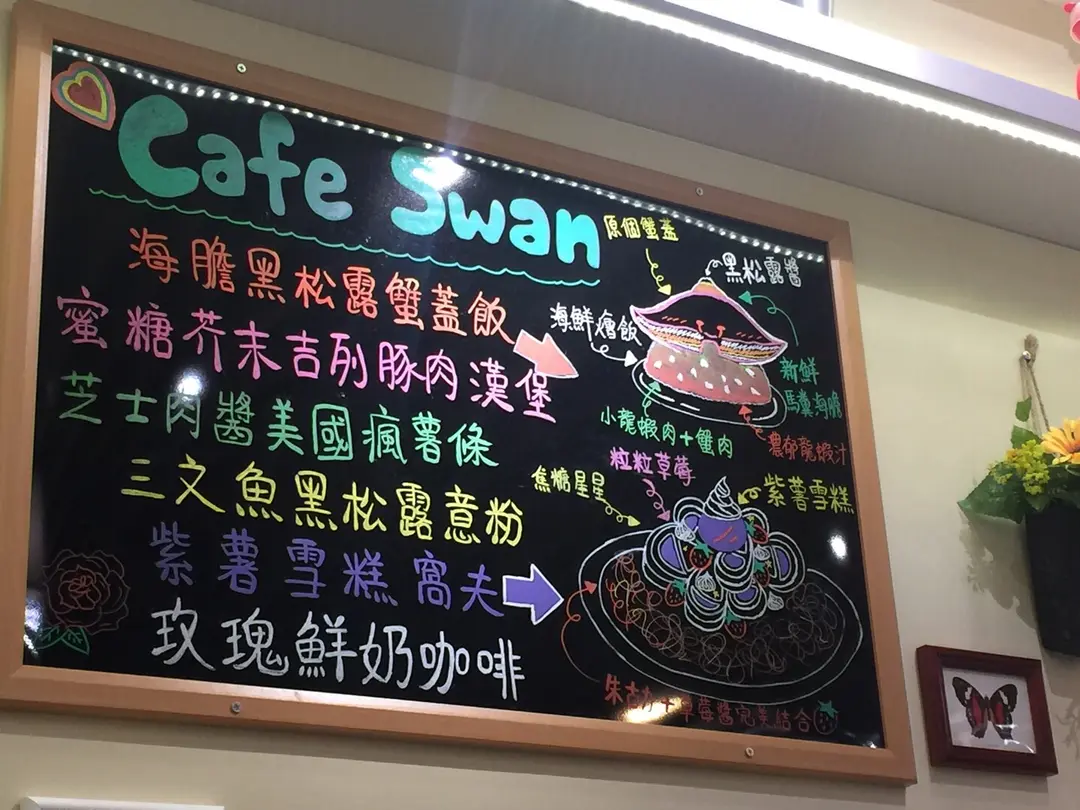 Cafe Swan
海膽黑松露蟹蓋飯
蜜糖芥末吉列豚肉漢堡
芝士肉醬美國瘋薯條
三文魚黑松露意粉
紫薯雪糕窩夫
玫瑰鮮奶咖啡
原個蟹蓋
黑松露醬
海鮮燴飯
新鮮
馬糞海膽
小龍蝦肉+蟹肉
濃郁龍蝦汁
粒粒草莓
焦糖星星
紫薯雪糕
朱古力+草莓醬完美結合